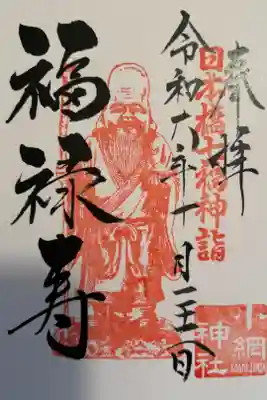 奉拝
日本橋七福神詣
令和 年 月 日
福禄寿
小網
神社